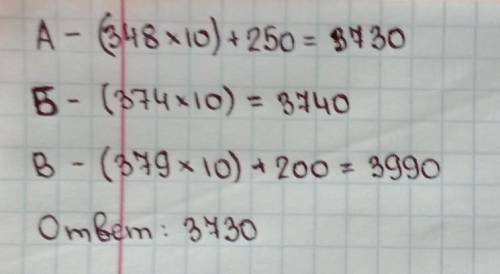 А - (348×10) + 250 = 3730
Б - (374×10) = 3740
В - (379×10) + 200 = 3990
Ответ: 3730